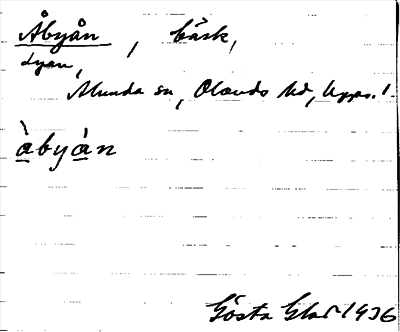 Åbyån, bäck,
dyan,
Alunda sn, Olands hd, Upps. l.
àbyàn
Gösta Glas 1936